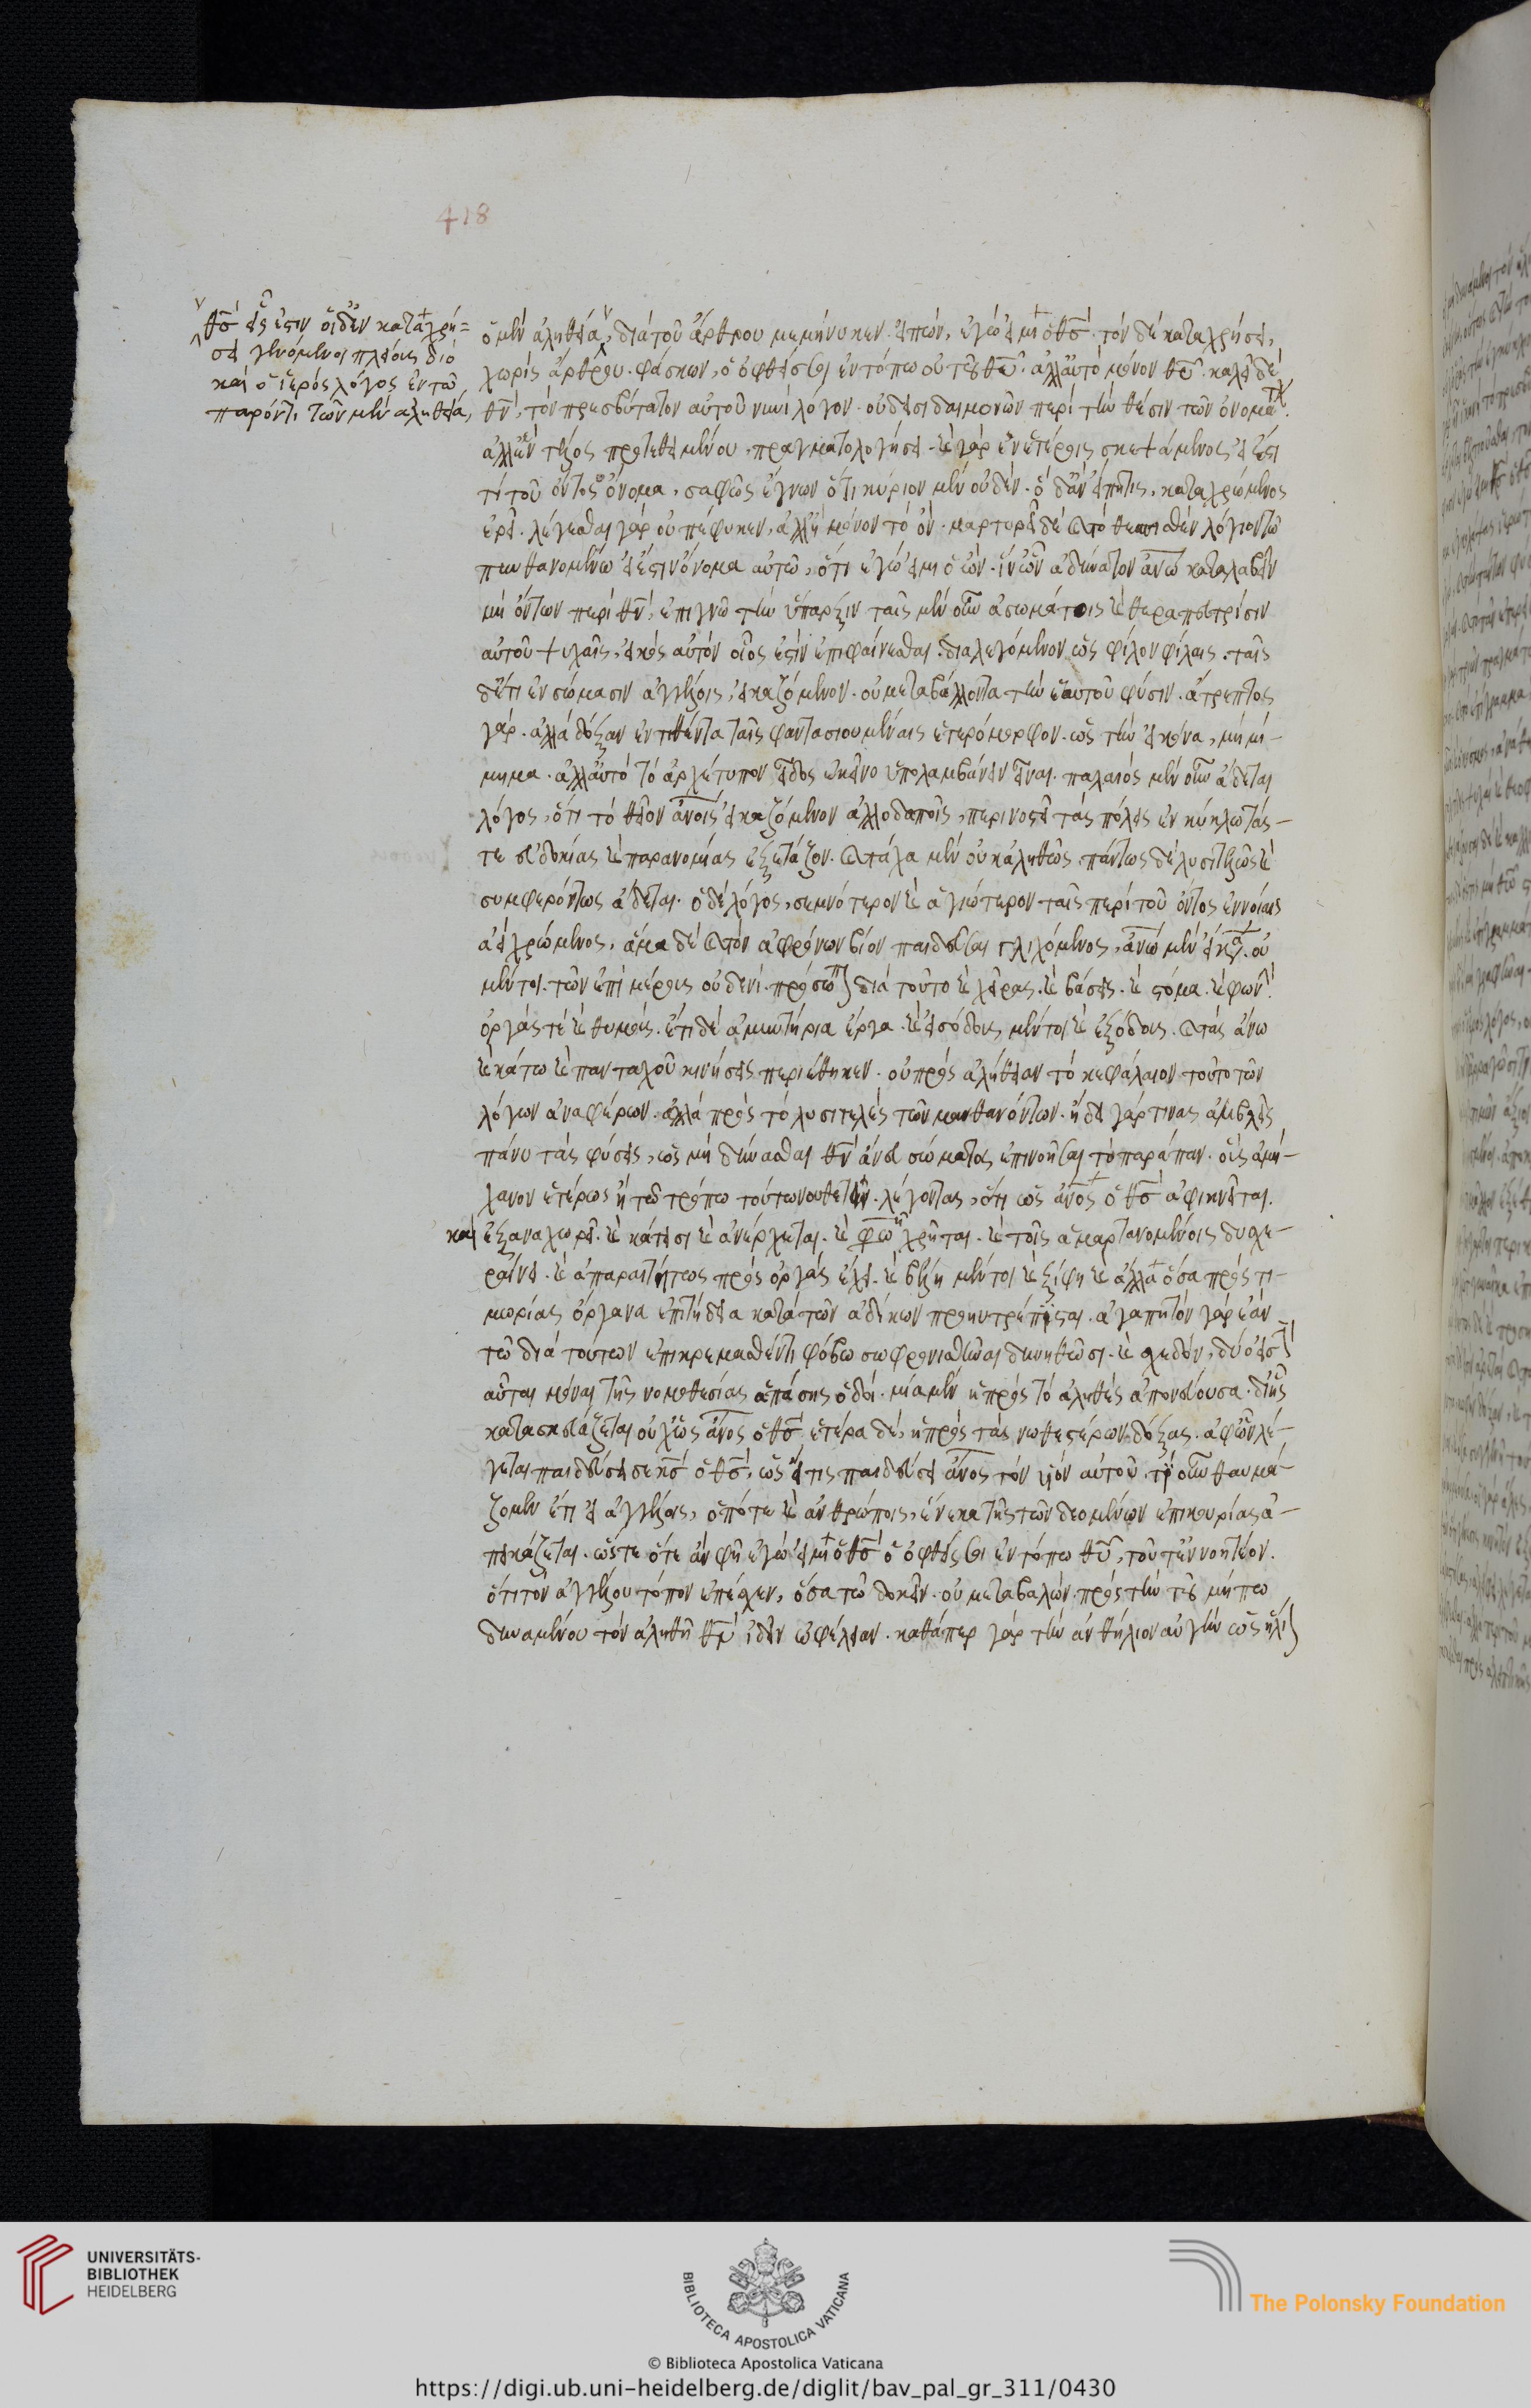 418
θς εἷς ἐστιν οἱ δ' ἐν καταχρή=
σει γενόμενοι πλείους διό
καὶ ὁ ἱερὸς λόγος ἐν τῶ
παρόντι τὸν μὲν ἀληθεία,
ὁ μὲν ἀληθεία, διὰ τοῦ ἄρθρου μεμήνυκεν. εἰπών, ἐγώ εἰμι ὁ θς. τὸν δὲ καταχρήσει,
χωρὶς ἄρθρου. φάσκων, ὁ ὀφθείς σοι ἐν τόπω οὐ τοῦ θυ. ἀλλ' αὐτὸ μόνον θυ. καλεῖ δὲ
θν, τὸν πρεσβύτατον αὐτοῦ νυνὶ λόγον. οὐ δεισιδαιμονῶν περὶ τὴν θέσιν τῶν ὀνομάτ.
ἀλλ' ἓν τέλος προτεθειμένου, πραγματολογῆσαι. καὶ γὰρ ἐν ἑτέροις σκεψάμενος εἰ ἔστι
τι τοῦ ὄντος ὄνομα, σαφῶς ἔγνων ὅτι κύριον μὲν οὐδέν. ὃ δ' ἂν εἴπη τις, καταχρώμενος
ἐρεῖ. λέγεσθαι γὰρ οὐ πέφυκεν, ἀλλὰ μόνον τὸ ὄν. μαρτυρεῖ δὲ καὶ τὸ θεσπισθὲν λόγιον τῶ
πυνθανομένω εἰ ἔστιν ὄνομα αὐτῶ, ὅτι ἐγώ εἰμι ὁ ὤν. ἵν' ὧν ἀδύνατον ἀνω καταλαβεῖν
μὴ ὄντων περὶ θν, ἐπιγνῶ τὴν ὕπαρξιν ταῖς μὲν οὖν ἀσωμάτοις καὶ θεραπευτρίσιν
αὐτοῦ ψυχαῖς, εἰκὸς αὐτὸν οἷός ἐστιν ἐπιφαίνεσθαι. διαλεγόμενον ὡς φίλον φίλαις. ταῖς
δ' ἔτι ἐν σώμασιν ἀγγέλοις, εἰκαζόμενον. οὐ μεταβάλλοντα τὴν ἑαυτοῦ φύσιν. ἄτρεπτος
γάρ. ἀλλὰ δόξαν ἐντιθέντα ταῖς φαντασιουμέναις ἑτερόμορφον. ὡς τὴν εἰκόνα, μὴ μί-
μημα. ἀλλ' αὐτὸ τὸ ἀρχέτυπον εἶδος ἐκεῖνο ὑπολαμβάνειν εἶναι. παλαιὸς μὲν οὖν ἄδεται
λόγος, ὅτι τὸ θεῖον ἀνοις εἰκαζόμενον ἀλλοδαποῖς, περινοστεῖ τὰς πόλεις ἐν κύκλω τάς-
τε ἀδικίας καὶ παρανομίας ἐξετάζον. καὶ τάχα μὲν οὐκ ἀληθῶς. πάντως δὲ λυσιτελῶς καὶ
συμφερόντως ἄδεται. ὁ δὲ λόγος, σεμνότερον καὶ ἁγιώτερον ταῖς περὶ τοῦ ὄντος ἐννοίαις
ἀεὶ χρώμενος, ἅμα δὲ καὶ τὸν ἀφρόνων βίον παιδεῦσαι γλιχόμενος, ἀνω μὲν εἴκασεν. οὐ
μέντοι. τῶν ἐπὶ μέρους οὐδενί. πρόσωπον διὰ τοῦτο καὶ χεῖρας. καὶ βάσεις. καὶ στόμα. καὶ φωνήν.
ὀργάς τε καὶ θυμούς. ἔτι δὲ ἀμυντήρια ἔργα. καὶ εἰσόδους μέντοι καὶ ἐξόδους. καὶ τὰς ἄνω
καὶ κάτω καὶ πανταχοῦ κινήσεις περιέθηκεν. οὐ πρὸς ἀλήθειαν τὸ κεφάλαιον τοῦτο τῶν
λόγων ἀναφέρων. ἀλλὰ πρὸς τὸ λυσιτελὲς τῶν μανθανόντων. ἤδει γάρ τινας ἀμβλεῖς
πάνυ τὰς φύσεις, ὡς μὴ δύνασθαι θν ἄνευ σώματος ἐπινοῆσαι τὸ παράπαν. οὓς ἀμή-
χανον ἑτέρως ἢ τῶ τρόπω τούτω νουθετεῖν. λέγοντας, ὅτι ὡς ἀνος ὁ θς ἀφικνεῖται.
καὶ ἐξαναχωρεῖ. καὶ κάτεισι καὶ ἀνέρχεται. καὶ φωνῆ χρῆται. καὶ τοῖς ἁμαρτανομένοις δυσχε-
ραίνει. καὶ ἀπαραιτήτως πρὸς ὀργὰς ἔχει. καὶ βέλη μέντοι καὶ ξίφη καὶ ἄλλα ὅσα πρὸς τι-
μωρίας ὄργανα ἐπιτήδεια κατὰ τῶν ἀδίκων προηυτρέπισται. ἀγαπητὸν γὰρ ἐὰν
τῶ διὰ τούτων ἐπικρεμασθέντι φόβω σωφρονισθῶσι δυνηθῶσι. καὶ σχεδόν, δύο εἰσὶν
αὗται μόναι τῆς νομοθεσίας ἁπάσης ὁδοί. μία μὲν ἡ πρὸς τὸ ἀληθὲς ἀπονεύουσα. δι' ἧς
κατασκευάζεται οὐχ ὡς ἀνος ὁ θς. ἑτέρα δέ, ἡ πρὸς τὰς νωθεστέρων δόξας. ἀφ' ὧν λέ-
γεται παιδεύσει σε κς ὁ θς, ὡς εἴ τις παιδεύσει ἀνος τὸν υἱὸν αὐτοῦ. τί οὖν θαυμά-
ζομεν ἔτι εἰ ἀγγέλοις, ὁπότε καὶ ἀνθρώποις, ἕνεκα τῆς τῶν δεομένων ἐπικουρίας ἀ-
πεικάζεται. ὥστε ὅτε ἂν φῆ ἐγώ εἰμι ὁ θς ὁ ὀφθείς σοι ἐν τόπω θυ, τοῦτ' ἐννοητέον.
ὅτι τὸν ἀγγέλου τόπον ἐπέσχεν, ὅσα τῶ δοκεῖν. οὐ μεταβαλών. πρὸς τὴν τοῦ μήπω
δυναμένου τὸν ἀληθῆ θν ἰδεῖν ὠφέλειαν. καθάπερ γὰρ τὴν ἀνθήλιον αὐγὴν ὡς ἥλιον
UNIVERSITÄTS-
BIBLIOTHEK
HEIDELBERG
BIBLIOTECA APOSTOLICA VATICANA
The Polonsky Foundation
© Biblioteca Apostolica Vaticana
https://digi.ub.uni-heidelberg.de/diglit/bav_pal_gr_311/0430